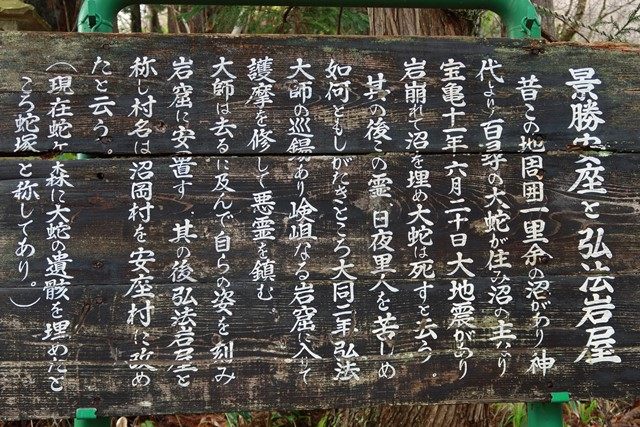 景勝安座と弘法岩屋
昔この地周囲一里余の沼があり神
代より百尋の大蛇が住み沼の主なり
宝亀十一年六月二十日大地震があり
岩崩れ沼を埋め大蛇は死すと云う
其の後この霊日夜里人を苦しめ
如何ともしがたきところ大同二年弘法
大師の巡錫あり嶮岨なる岩窟に入りて
護摩を修して悪霊を鎮む
大師は去るに及んで自らの姿を刻み
岩窟に安置す其の後弘法岩屋と
称し村名は沼岡村を安座村に改め
たと云う。
(現在蛇ヶ森に大蛇の遺骸を埋めたと
ころ蛇塚と称してあり。)